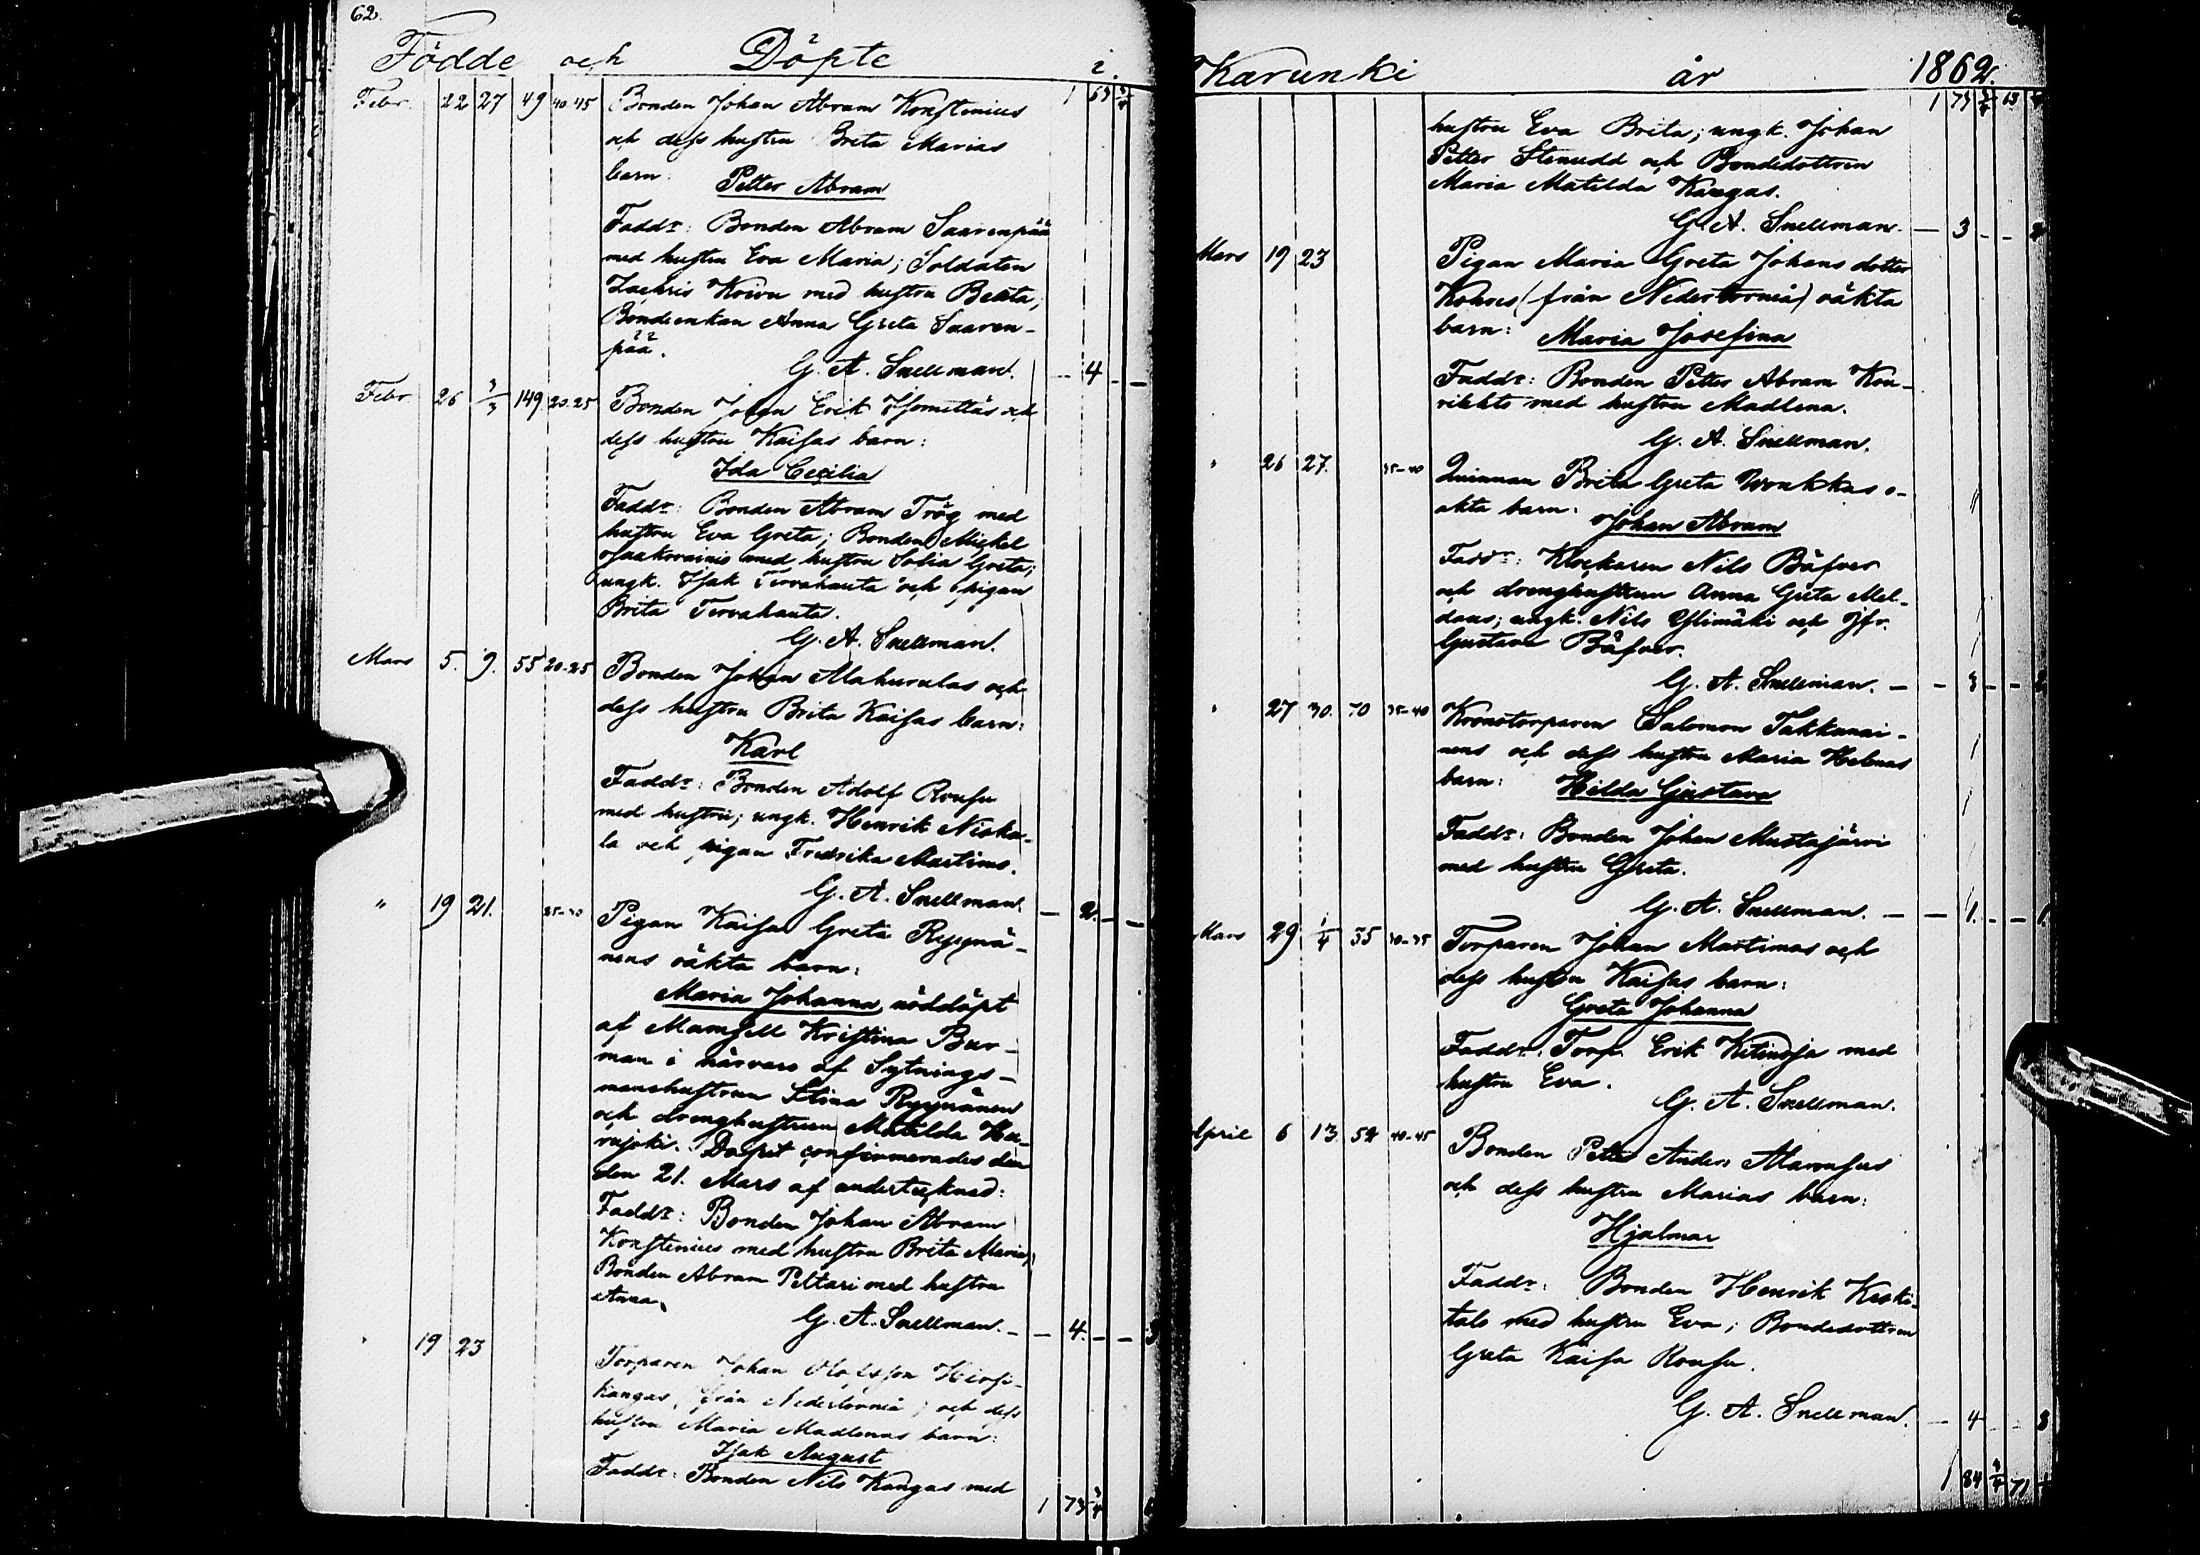 62.
Födde och Döpte i
Febr. 22 27 49 40-45 Bonden Johan Abram Konstenius 1 63 3/4
och dess hustru Brita Marias
barn.
Petter Abram
Faddr: Bonden Abram Saarenpää
med hustru Eva Maria; Soldaten
Zachris Koivu med hustru Beata;
Bondeenkan Anna Greta Saaren-
pää.
G. A. Snellman. - 4 - -
Febr 26 2/3 149 20-25 Bonden Johan Erik Isomettäs och
dess hustru Kaisas barn:
Ida Cecilia
Faddr: Bonden Abram Trög med
hustru Eva Greta; Bonden Mickel
med hustru Sofia Greta;
ungk. Isak Tervahauta och pigan
Brita Tervahauta.
G. A. Snellman.
Mars 5. 9. 55 20-25 Bonden Johan Alahurulas och
dess hustru Brita Kaisas barn:
Karl
Faddr: Bonden Adolf Rousu
med hustru; ungk. Henrik Niska-
la och pigan Fredrika Martimo.
G. A. Snellman. - 2. - -
" 19 21. Pigan Kaisa Greta Ryynä-
nens oäkta barn:
Maria Johanna, nöddöpt
af Mamsell Kristina Bur-
man i närvaro af Sytnings-
manshustrun Stina Ryynänen
och drenghustrun Matilda
Dopet confirmerades den
den 21. Mars af undertecknad:
Faddr: Bonden Johan Abram
Konstenius med hustru Brita Maria;
Bonden Abram Peltari med hustru
Anna.
G. A. Snellman. - - 4. - - 3
19 23 Torparen Johan Olofsson Hirsi-
kangas (från Nedertorneå) och dess
hustru Maria Madlenas barn:
Isak August
Faddr: Bonden Nils Kangas med
1 73 3/4
Karunki år 1862.
1 73 3/4 63
hustru Eva Brita; ungk. Johan
Petter Stenudd och Bondedottren
Maria Matilda Kangas.
G. A. Snellman. - 3 - - 2
Mars 19 23 Pigan Maria Greta Johans dotter
(från Nedertorneå) oäkta
barn: Maria Josefina
Faddr: Bonden Petter Abram Kou-
med hustru Madlena.
G. A. Snellman.
" 26 27. 35-40 Quinnan Brita Greta o-
äkta barn:
Johan Abram
Faddr: Klockaren Nils Bäfver
och drenghustrun Anna Greta Mel-
dans; ungk. Nils Ylimäki och Jfr.
Gustava Bäfver.
G. A. Snellman. - - 3 - - 2
" 27 30. 70 35-40 Kronotorparen Salomon Takkunai-
nens och dess hustru Maria Helenas
barn: Hilda Gustava
Faddr: Bonden Johan Mustajärvi
med hustru Greta.
G. A. Snellman. - - 1. - - 1.
Mars 29 1/4 55 30-35 Torparen Johan Martimos och
dess hustru Kaisas barn:
Greta Johanna
Faddr: Torp. Erik Kitinoja med
hustru Eva.
G. A. Snellman.
April 6 13 52 40-45 Bonden Petter Anders Alarousus
och dess hustru Marias barn:
Hjalmar
Faddr: Bonden Henrik Keski-
talo med hustru Eva; Bondedottren
Greta Kaisa Rousu.
G. A. Snellman. - 4 - - 3
1 84 3/4 71